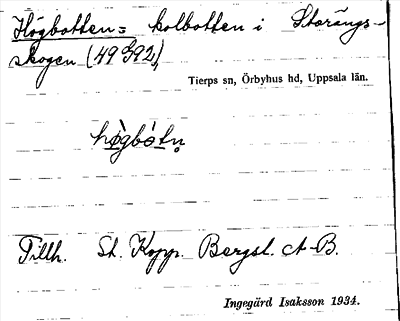 Högbotten = kolbotten i Storängs-
skogen (49 G92)
Tierps sn, Örbyhus hd, Uppsala län.
hø̀gbótn̥
Tillh. St. Kopp. Bergsl. A-B.
Ingegärd Isaksson 1934.